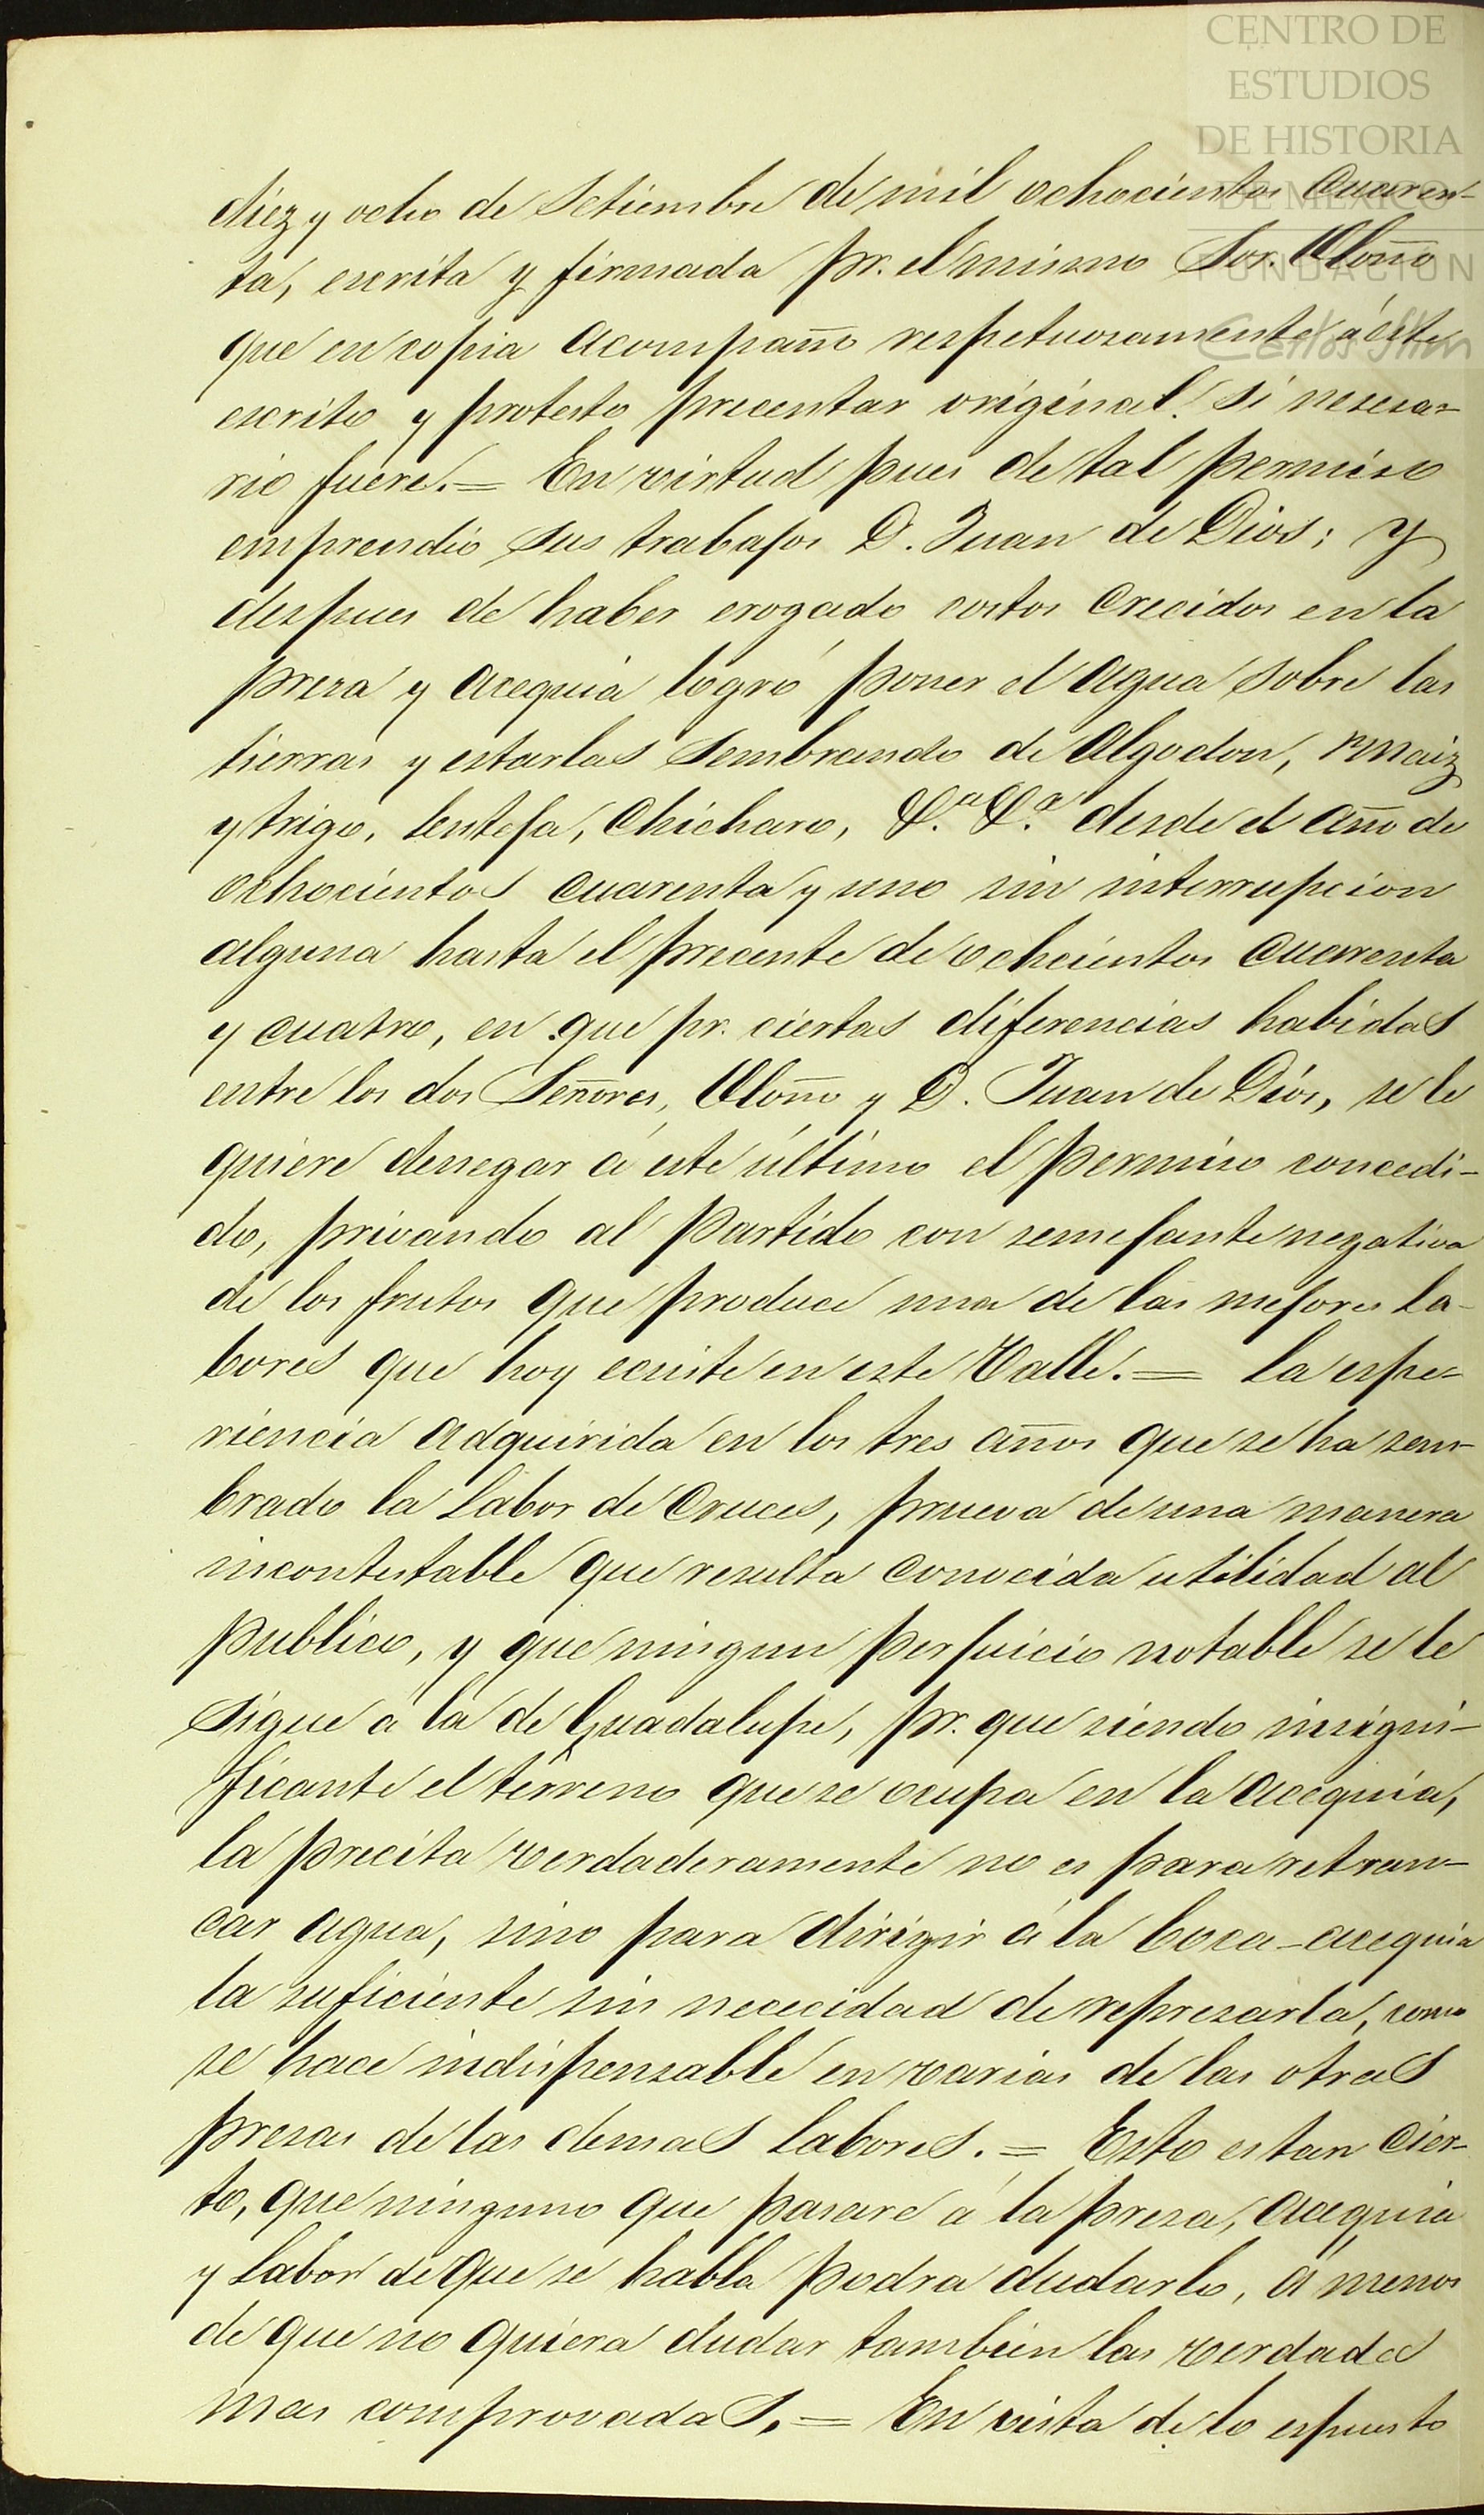 CENTRO DE
ESTUDIOS
DE HISTORIA
DE MEXICO
FUNDACION
Carlos Slim
diez y ocho de Setiembre de mil ochocientos cuaren-
ta, escrita y firmada pr. el mismo Sor. Uloño
que en copia acompaño respetuosamente á éste
escrito y protesto precentar original si nesesa-
rio fuere.= En virtud pues de tal permiso
emprendio sus trabajos D. Juan de Dios; y
despues de haber erogado costos crecidos en la
preza y acequia logró poner el agua sobre las
tierras y estarlas sembrando de Algodon, maiz
y trigo, lenteja, chicharo, &.a &.a desde el año de
ochocientos cuarenta y uno sin interrupcion
alguna hasta el precente de ochocientos cuarenta
y cuatro, en que pr. ciertas diferencias habidas
entre los dos Señores, Uloño y D. Juan de Dios, se le
quiere denegar á este último el permiso concedi-
do, privando al Partido con semejante negativa
de los frutos que produce una de las mejores La-
bores que hoy ecsiste en este Valle.= La espe-
riencia adquirida en los tres años que se ha sem-
brado la Labor de Cruces, prueva de una manera
incontestable que resulta conocida utilidad al
publico, y que ningun perjuicio notable se le
sigue á la de Guadalupe, pr. que siendo insigni-
ficante el terreno que se ocupa en la acequia,
la precita verdaderamente no es para retran-
car agua, sino para dirigir á la boca-acequia
la suficiente sin nececidad de represarla, como
se hace indispensable en varias de las otras
presas de las demas Labores.= Esto es tan cier-
to, que ninguno que pasare á la presa, acequia
y Labor de que se habla podra dudarlo, á menos
de que no quiera dudar tambien las verdades
mas comprovadas.= En vista de lo espuesto